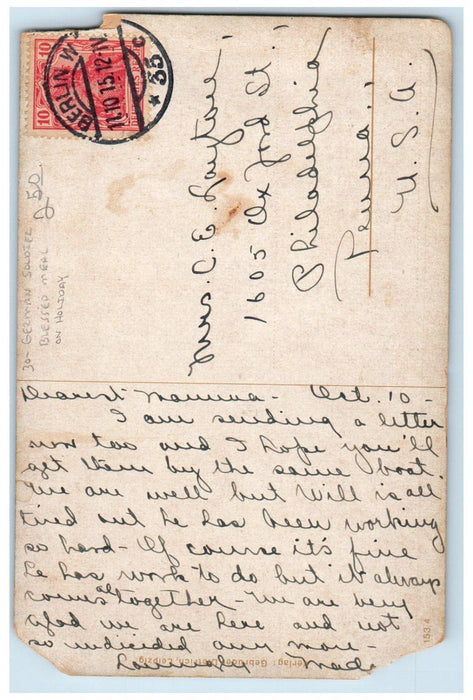 10
10
BERLIN W
11.10.15.12-1V.
* 35 c
30- GERMAN SOLDIER
BLESSED MEAL
ON HOLIDAY
Mrs. C. E.
1605 Oxford St.
Philadelphia
Penna.
U. S. A.
Dearest Mamma - Oct. 10 -
I am sending a letter
now too and I hope you'll
get them by the same boat.
We are well but Will is all
tired out he has been working
so hard - Of course it's fine
he has work to do but it always
comes all together - We are very
glad we are here and not
so undicided any more -
Lovingly Madi
Verlag: Gebrüder Dietrich, Leipzig
153,4